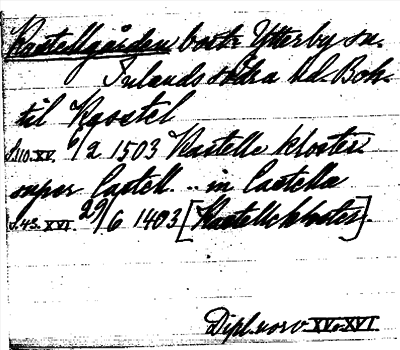 Kastellgården bost. Ytterby sn.
Inlands södra hd. Boh.
til Kastel
s. 110. XV. 6/2 1503 Kastelle kloster
super Castell .. in Castella
s. 43. XVI. 29/6 1403 [Kastellekloster].
Dipl. norv. XV o. XVI.